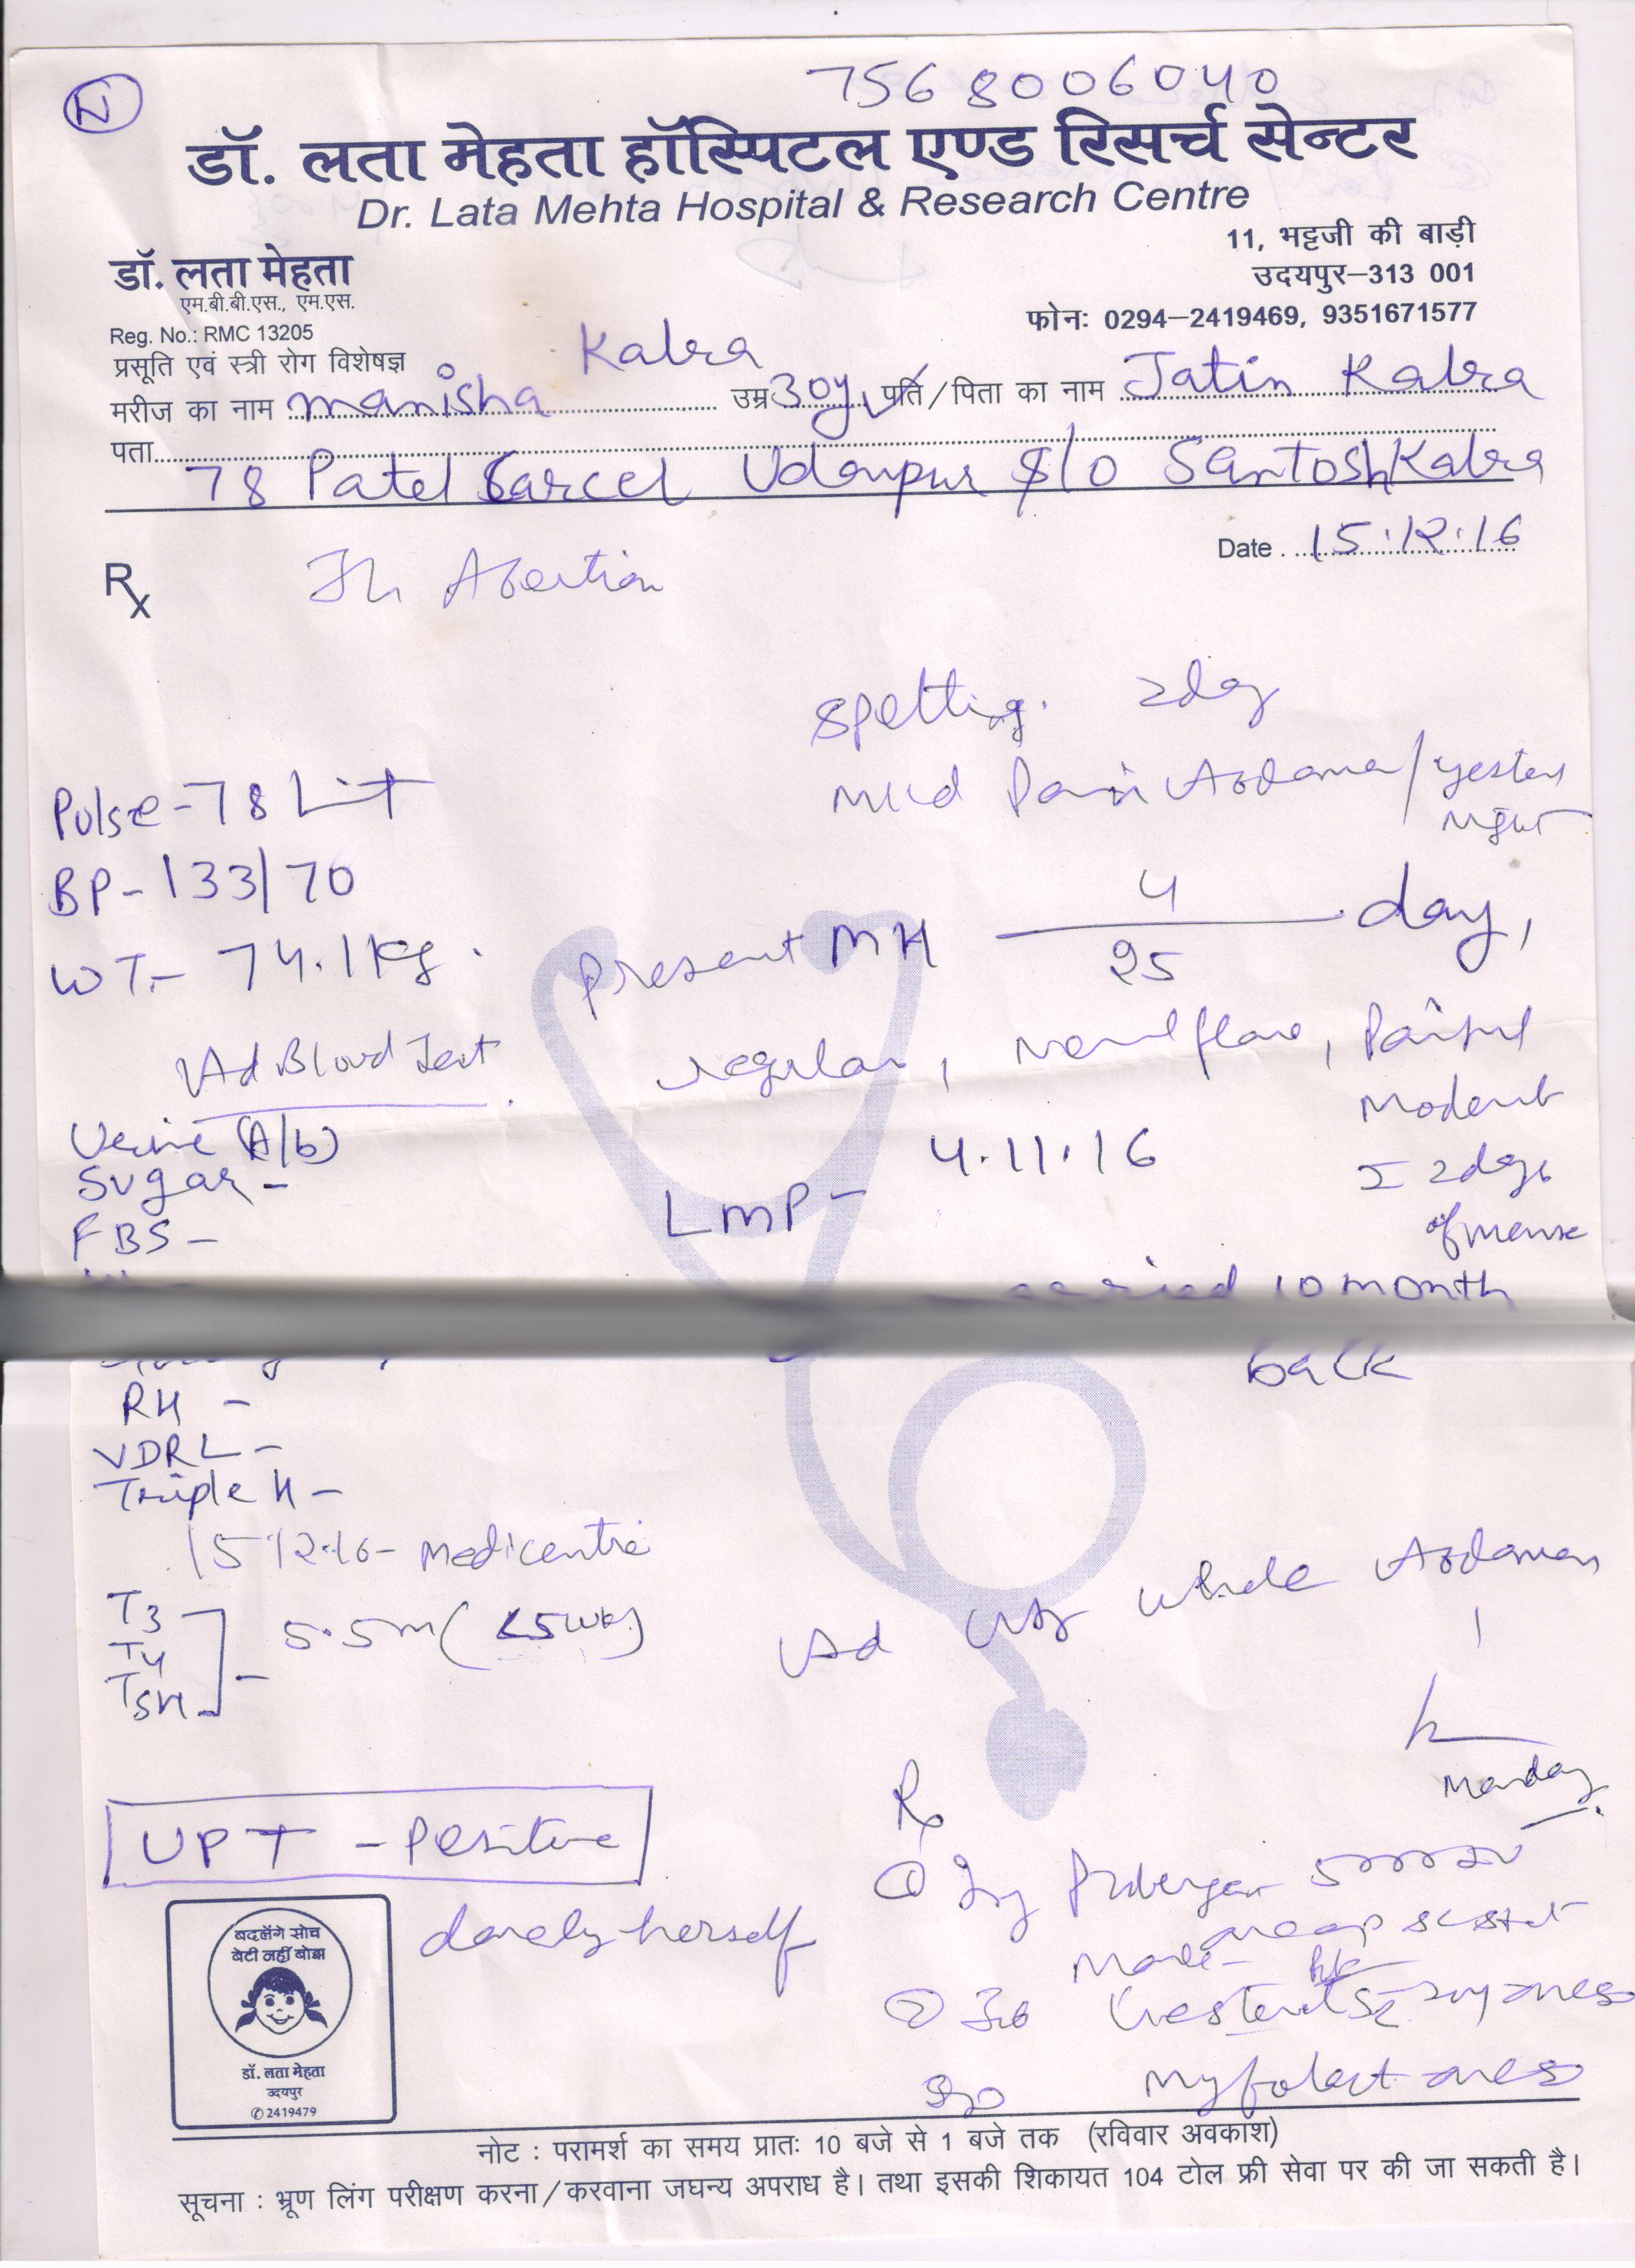 N
7568006040
डॉ. लता मेहता हॉस्पिटल एण्ड रिसर्च सेन्टर
Dr. Lata Mehta Hospital & Research Centre
11, भट्टजी की बाड़ी
उदयपुर–313 001
फोनः 0294–2419469, 9351671577
डॉ. लता मेहता
एम.बी.बी.एस., एम.एस.
Reg. No.: RMC 13205
प्रसूति एवं स्त्री रोग विशेषज्ञ
मरीज का नाम manisha Kabra उम्र 30y पति/पिता का नाम Jatin Kabra
पता
78 Patel Sarcel Udaipur S/o Santosh Kabra
Date . 15.12.16
Rx Th Abortion
spotting. 2day
mild Pain Abdomen/yester
night
Pulse-78
BP-133/70
WT.- 74.1kg.
present MH 4/25 day,
Ad Blood Test
regular, flow, Painful
Moderate
2days
of mense
Urine (A/b)
Sugar-
FBS-
LMP- 4.11.16
married 10 month
back
RH -
VDRL-
Triple H-
15.12.16- Medicentre
T3
T4
TSH
5.5m (<5wk)
Ad USG whole Abdomen
Monday
UPT - Positive
herself
Rx
① Inj 5000
②
बदलेंगे सोच
बेटी नहीं बोझ
डॉ. लता मेहता
उदयपुर
✆ 2419479
नोट : परामर्श का समय प्रातः 10 बजे से 1 बजे तक (रविवार अवकाश)
सूचना : भ्रूण लिंग परीक्षण करना/करवाना जघन्य अपराध है। तथा इसकी शिकायत 104 टोल फ्री सेवा पर की जा सकती है।